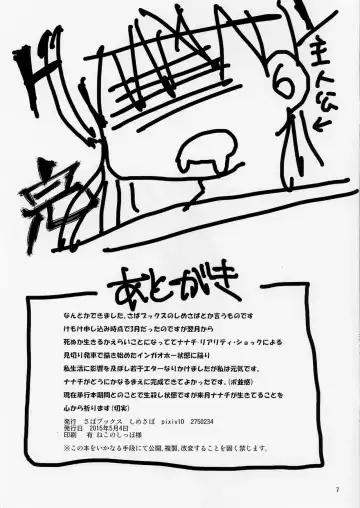 主人公
完
あとがき
なんとかできました、さばブックスのしめさばとか言うものです
けもけ申し込み時点で3月だったのですが翌月から
死ぬか生きるかえらいことになっててナナチ・リアリティ・ショックによる
見切り発車で描き始めたインガオホー状態に陥り
私生活に影響を及ぼし若干エターなりかけましたが私は元気です。
ナナチがどうにかなるまえに完成できてよかったです。(ボ並感)
現在承行本期間とのことで生殺し状態ですが来月ナナチが生きてることを
心から祈ります(切実)
発行 さばブックス しめさば pixivID 2750234
発行日 2015年5月4日
印刷 有 ねこのしっぽ様
※この本をいかなる手段にて公開,複製,改変することを固く禁じます。
7